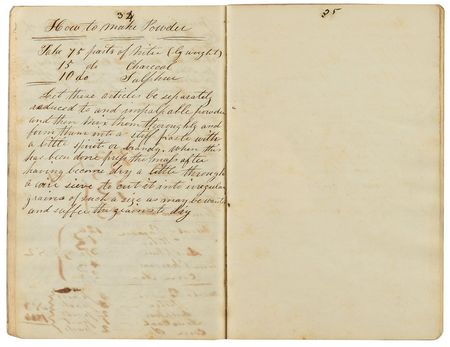 34
How to make Powder
Take 75 parts of Niter (by weight)
15 do Charcoal
10 do Sulphur
Let these article be separately
reduced to and impalpable powder
and then mix them thoroughly and
form them into a stiff paste with
a little spirit or brandy. When this
has been done press the mass after
having become dry a little through
a wire sieve to cut it into irregular
grains of such a size as may be wanted
and suffer the grains to dry
35